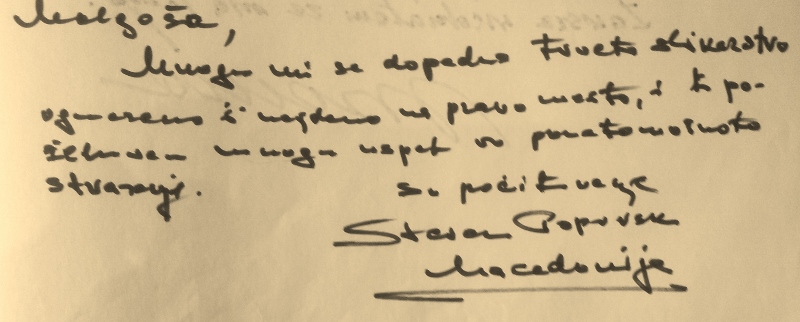 Malgoša,
Mnogu mi se dopadna tvoeto slikarstvo
i najdeno na pravo mesto, i ti po-
želuvam mnogu uspeh vo ponatamošnoto
stvaranje.
so počituvanje
Stevan Popovski
Macedonija